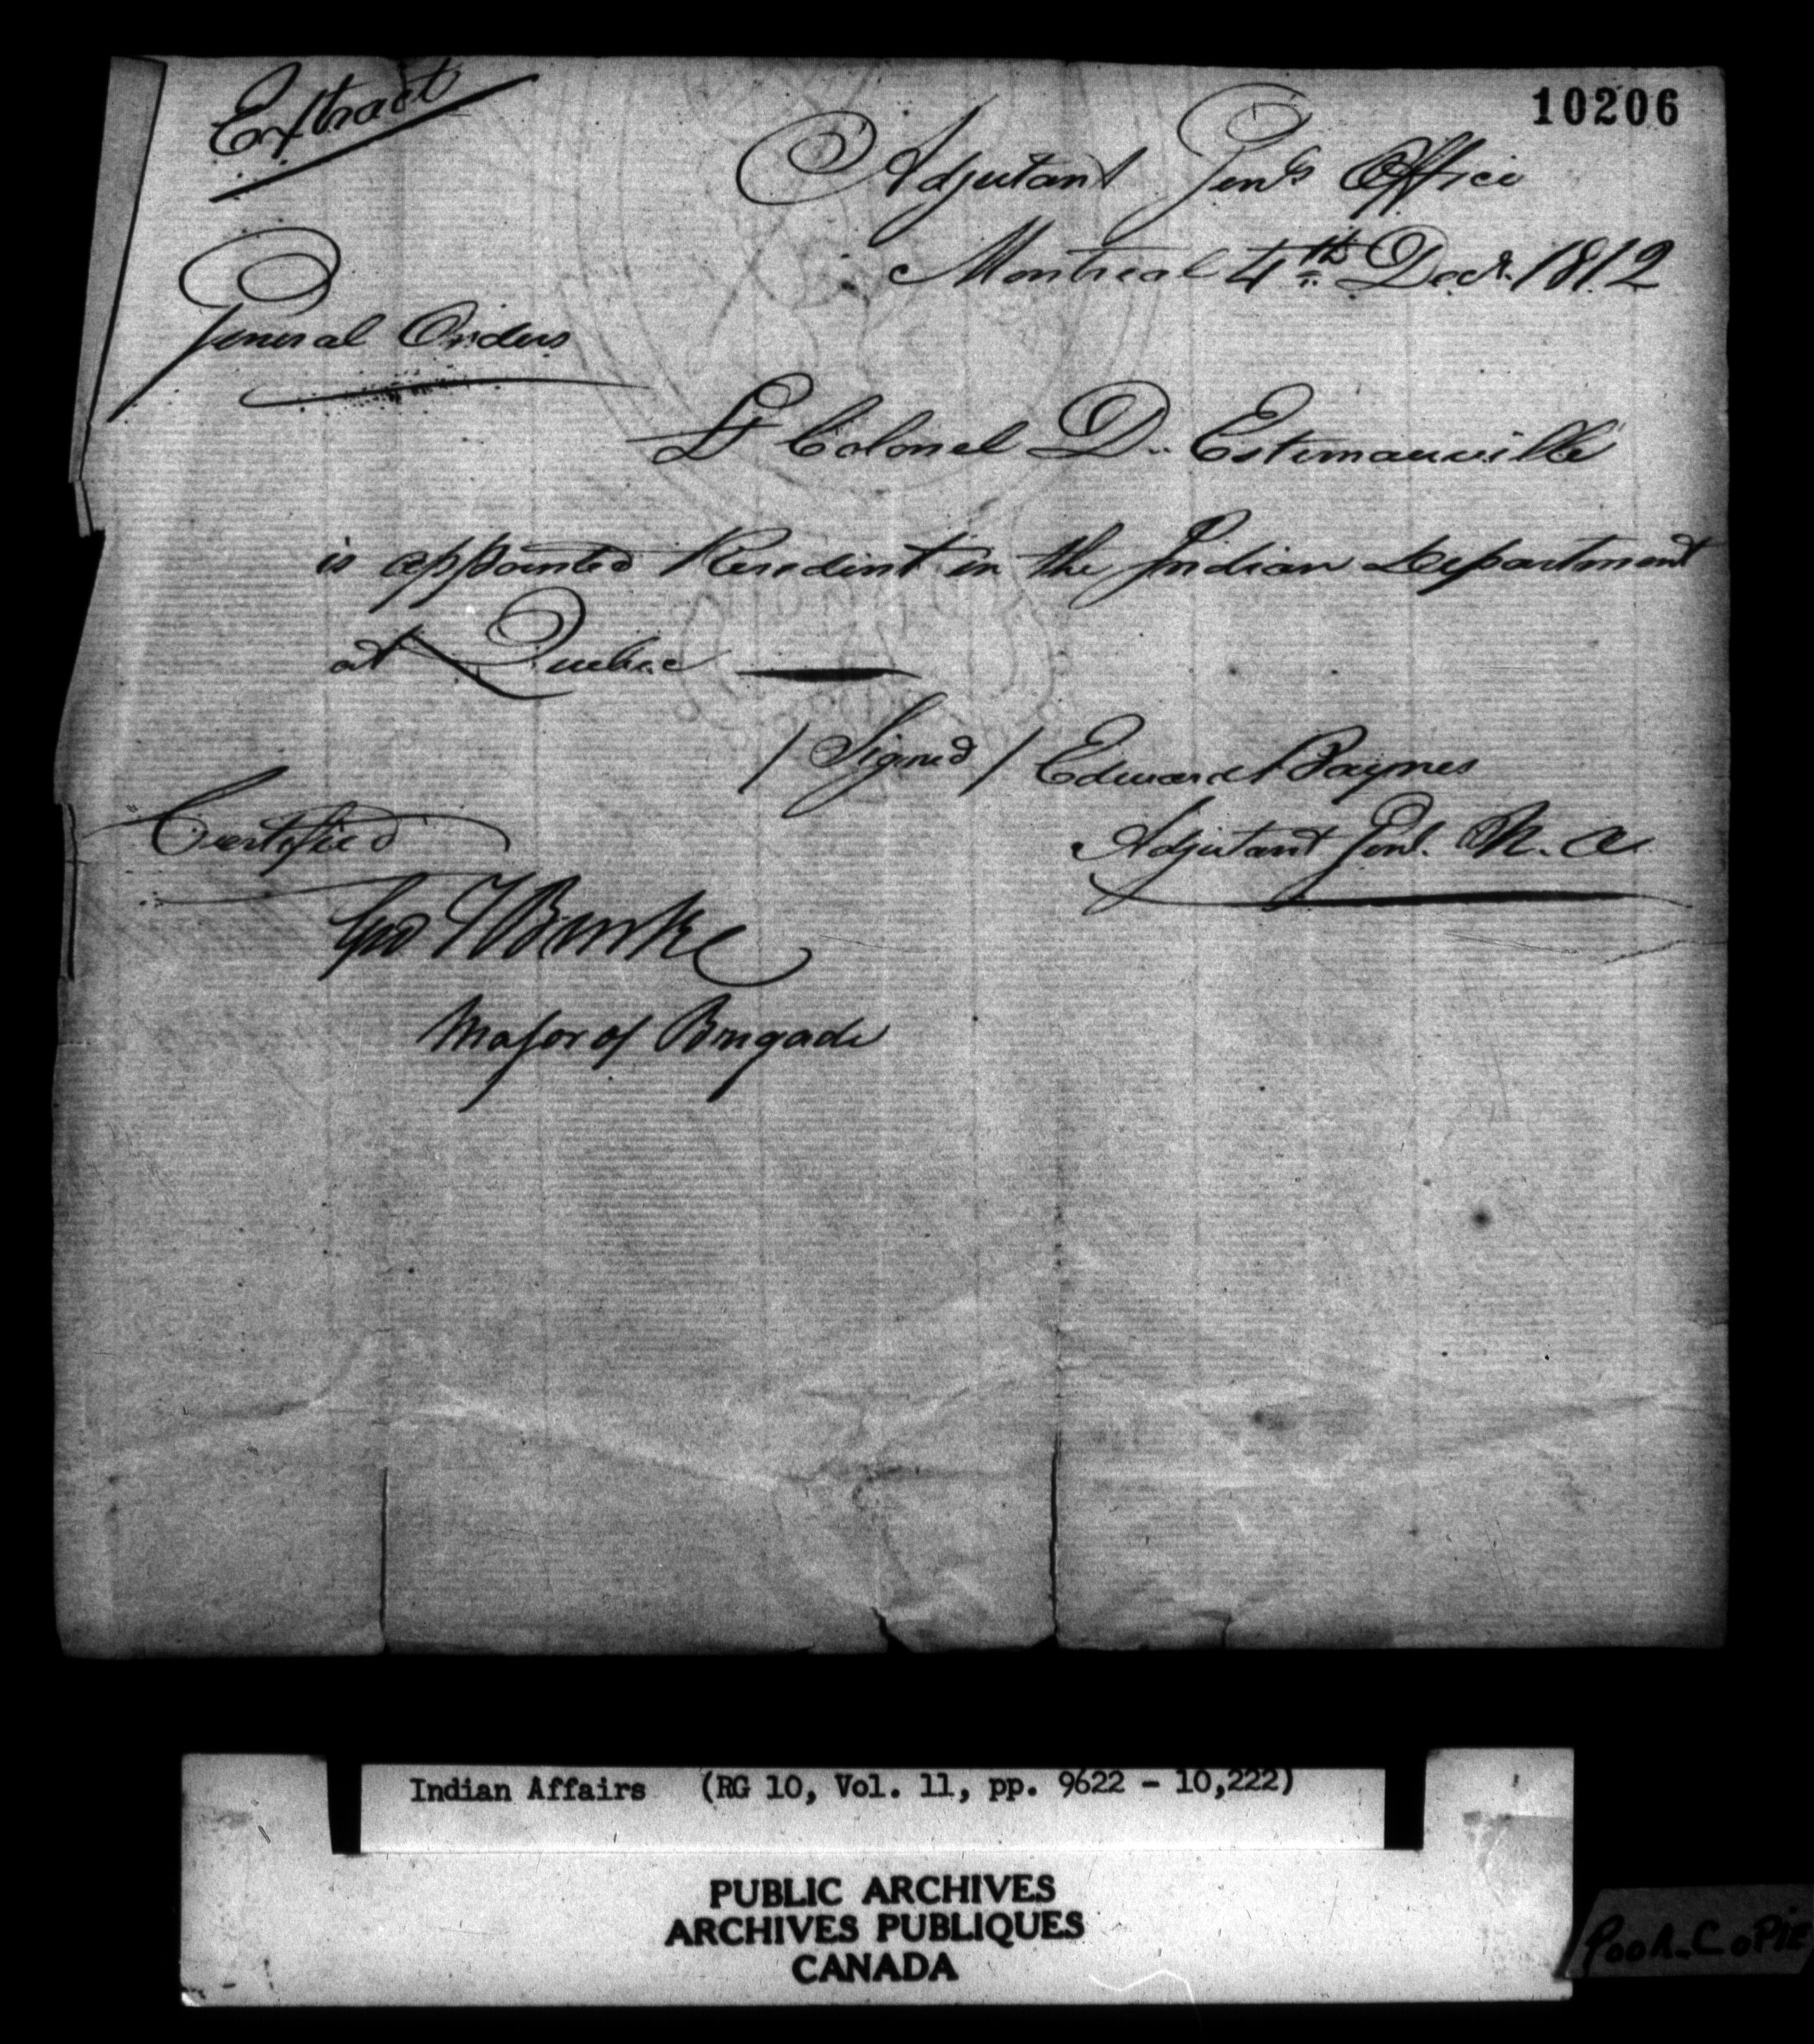 Extract
10206
Adjutant Genls Office
Montreal 4th Decr. 1812
General Orders
Lt Colonel D. Estimauville
is appointed Resident in the Indian Department
at Quebec
/ Signed / Edward Baynes
Adjutant Genl. N. A.
Certified
Geo T Burke
Major of Brigade
Indian Affairs (RG 10, Vol. 11, pp. 9622 - 10,222)
PUBLIC ARCHIVES
ARCHIVES PUBLIQUES
CANADA
POOR-COPIE